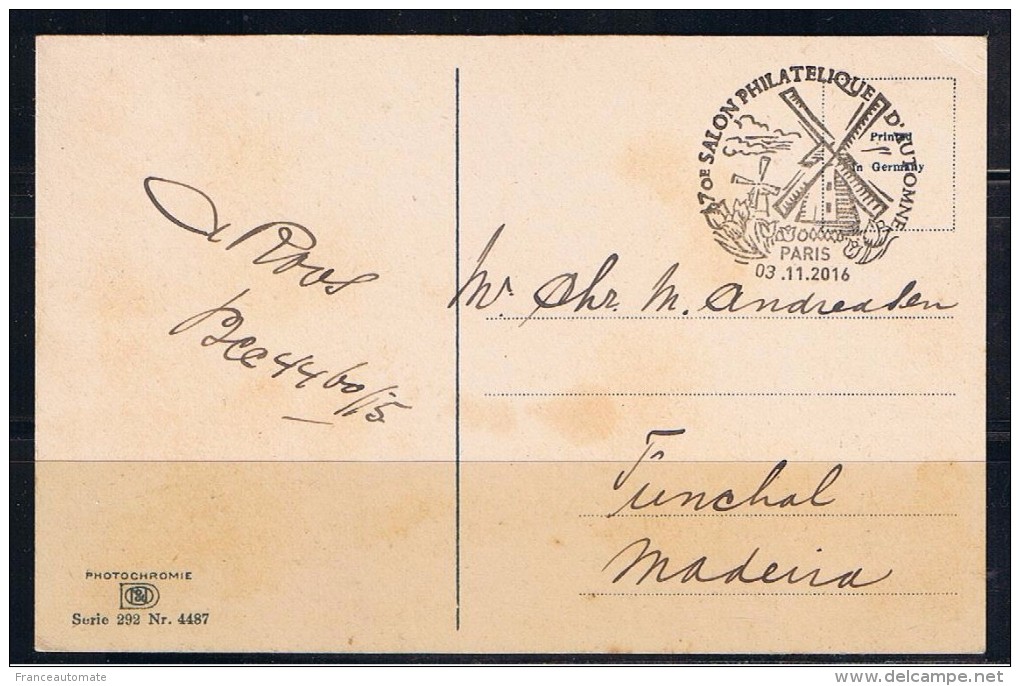 70E SALON PHILATELIQUE D'AUTOMNE
PARIS
03.11.2016
Printed
in Germany
Roos
Mr. Chr. M. Andreasen
Funchal
Madeira
PHOTOCHROMIE
Serie 292 Nr. 4487
Franceautomate
delcampe.net